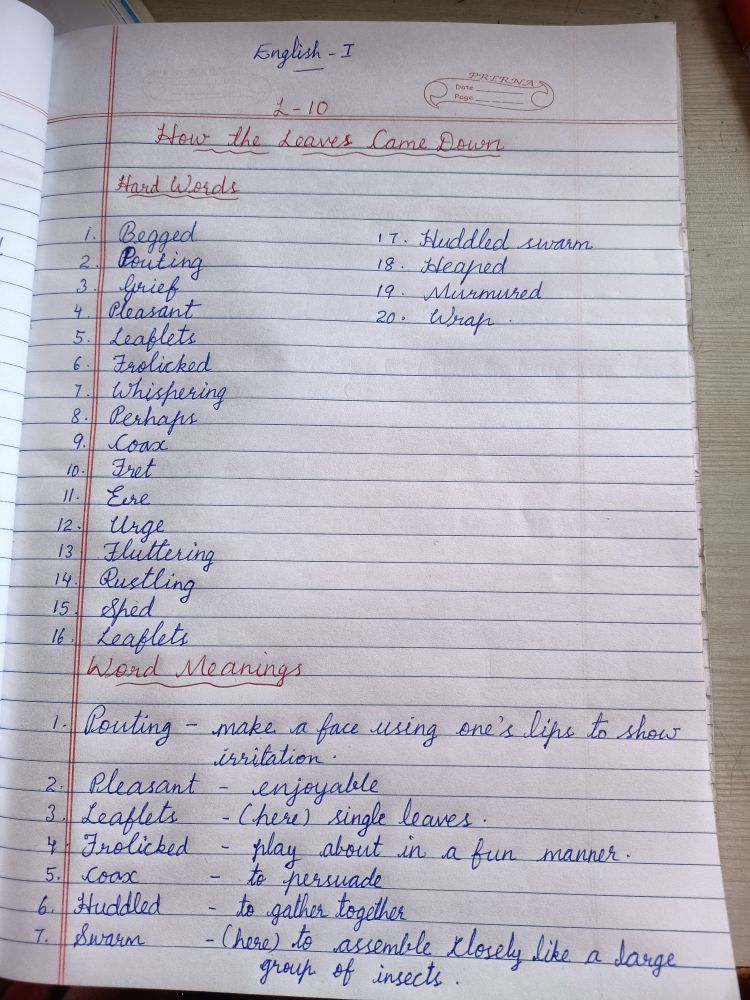 English - I
PRERNA
Date
Page
L - 10
How the Leaves Came Down
Hard Words
1. Begged
2. Pouting
3. Grief
4. Pleasant
5. Leaflets
6. Frolicked
7. Whispering
8. Perhaps
9. Coax
10. Fret
11. Ere
12. Urge
13 Fluttering
14. Rustling
15. Sped
16. Leaflets
17. Huddled swarm
18. Heaped
19. Murmured
20. Wrap.
Word Meanings
1. Pouting - make a face using one's lips to show
irritation.
2. Pleasant - enjoyable
3. Leaflets - (here) single leaves.
4. Frolicked - play about in a fun manner.
5. coax - to persuade
6. Huddled - to gather together
7. Swarm - (here) to assemble closely like a large
group of insects.